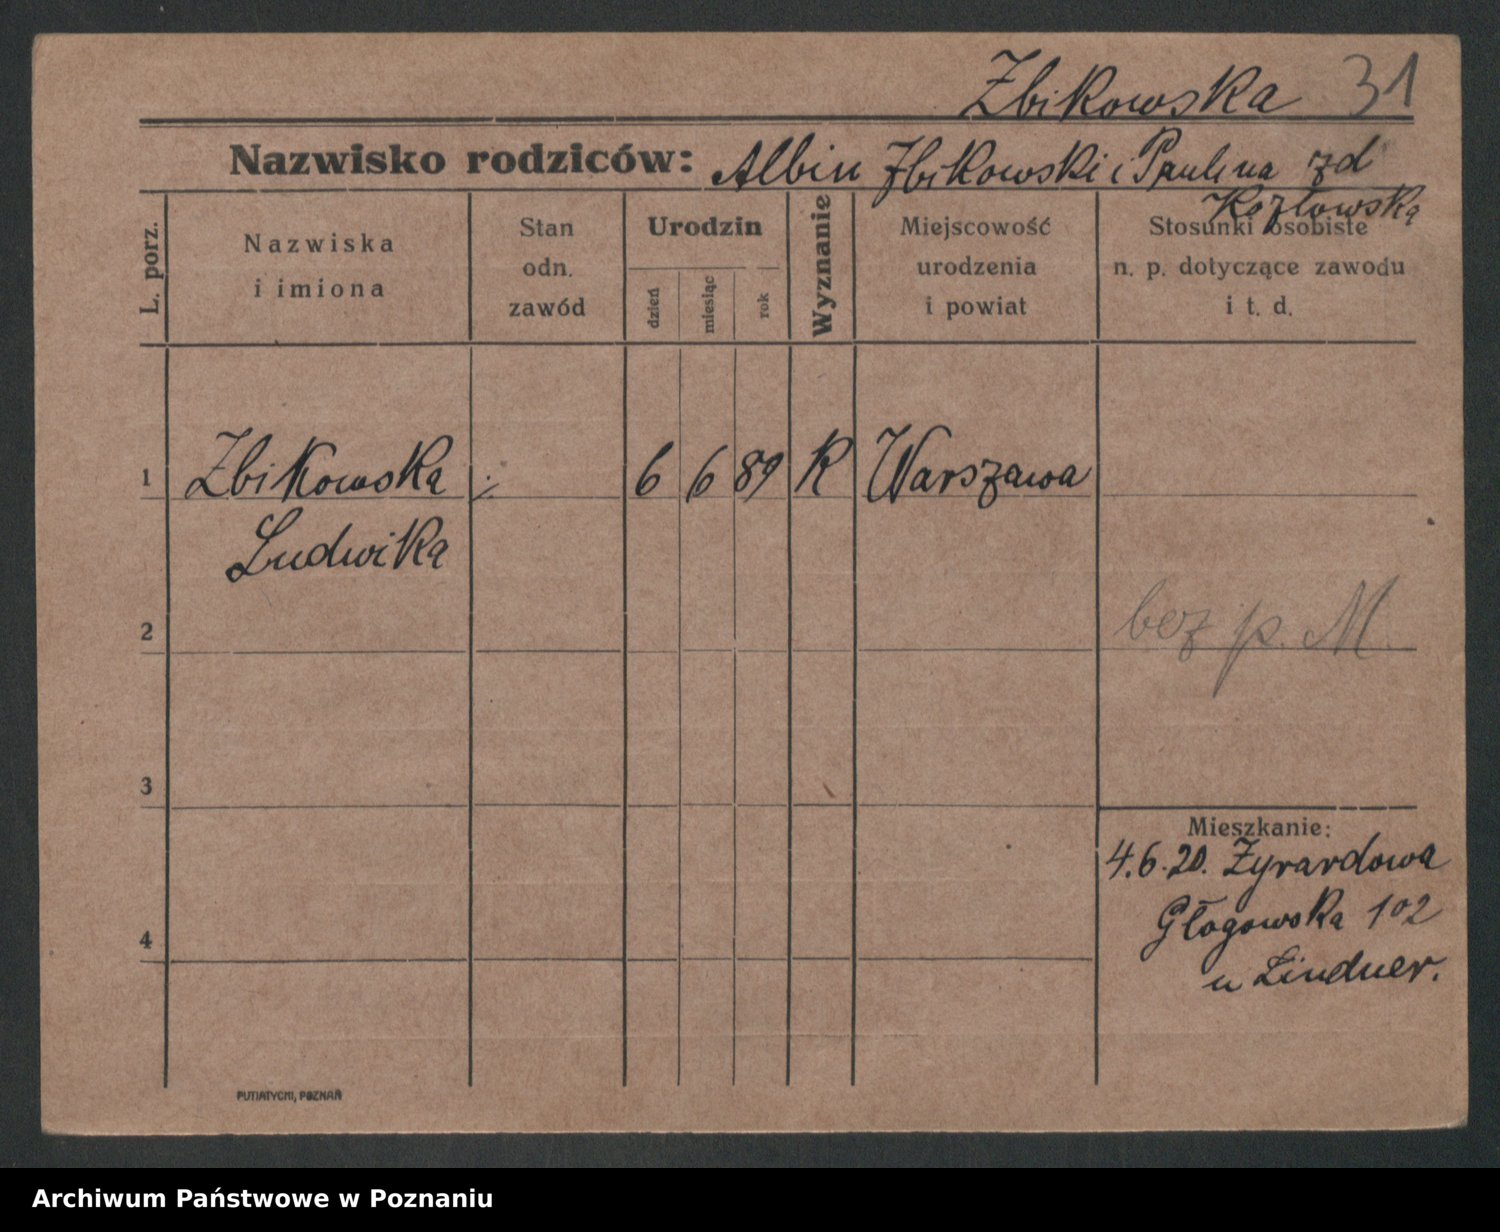 Zbikowska 31
Nazwisko rodziców: Albin Zbikowski i Paulina zd
Kozłowska
L. porz.
Nazwiska
i imiona
Stan
odn.
zawód
Urodzin
dzień
miesiąc
rok
Wyznanie
Miejscowość
urodzenia
i powiat
Stosunki osobiste
n. p. dotyczące zawodu
i t. d.
1 Zbikowska ·/. 6 6 89 K Warszawa
Ludwika
2 bez p. M.
3
Mieszkanie:
4.6.20. Żyrardowa
Głogowska 102
4
u Lindner.
PUTIATYCKI, POZNAŃ
Archiwum Państwowe w Poznaniu